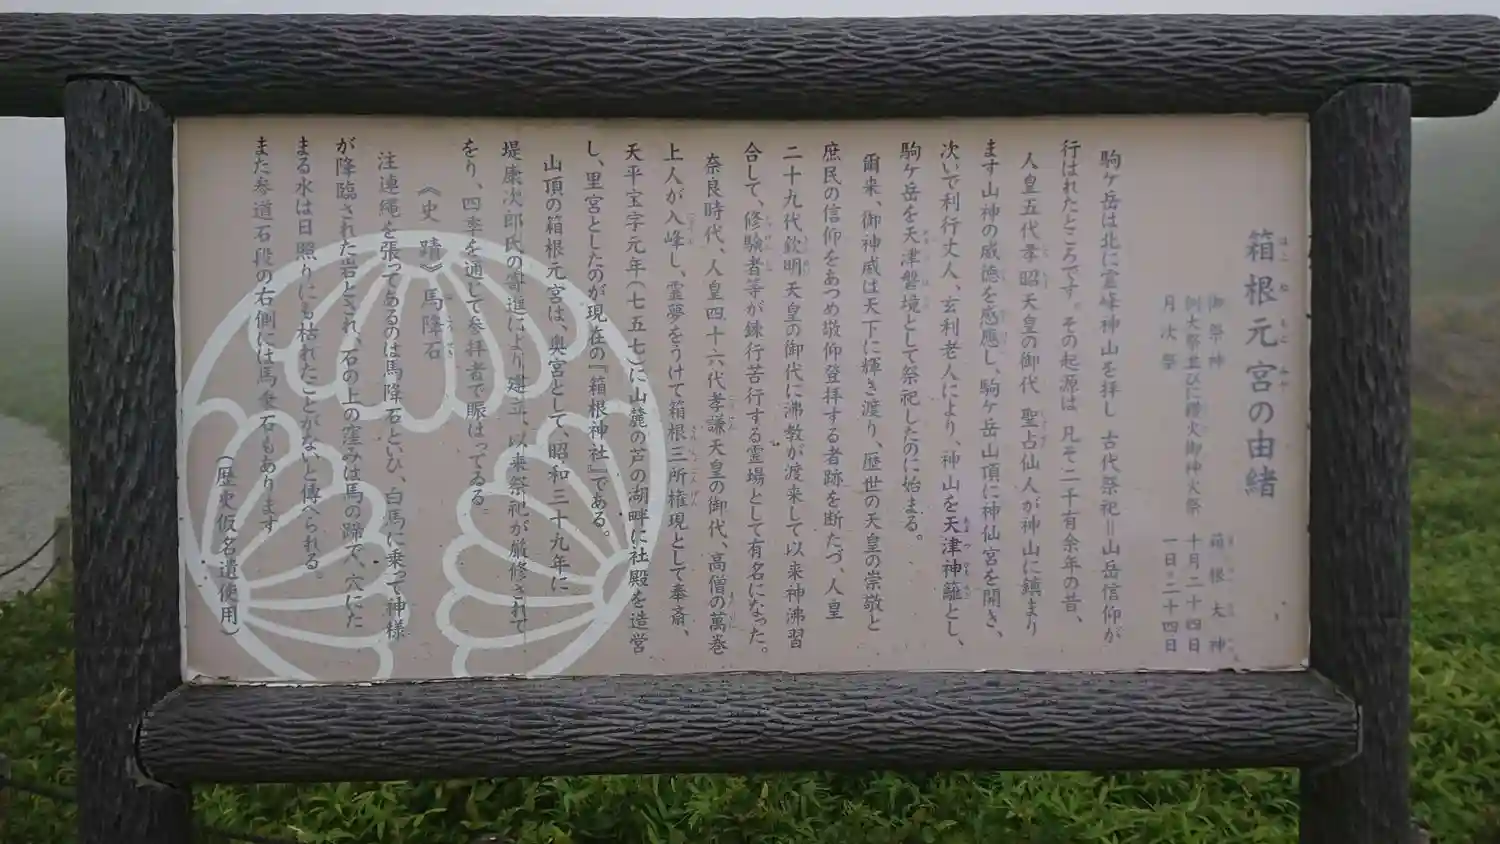 箱根元宮の由緒
御祭神 箱根大神
例大祭並びに禊火御神火祭 十月二十四日
月次祭 一日・二十四日
駒ケ岳は北に霊峰神山を拝し 古代祭祀＝山岳信仰が
行はれたところです。その起源は 凡そ二千有余年の昔、
人皇五代孝昭天皇の御代 聖占仙人が神山に鎮まり
ます山神の威徳を感應し、駒ケ岳山頂に神仙宮を開き、
次いで利行丈人、玄利老人により、神山を天津神籬とし、
駒ケ岳を天津磐境として祭祀したのに始まる。
爾来、御神威は天下に輝き渡り、歴世の天皇の崇敬と
庶民の信仰をあつめ敬仰登拝する者跡を断たづ、人皇
二十九代欽明天皇の御代に沸教が渡来して以来神沸習
合して、修験者等が錬行苦行する霊場として有名になった。
奈良時代、人皇四十六代孝謙天皇の御代、高僧の萬巻
上人が入峰し、霊夢をうけて箱根三所権現として奉斎、
天平宝字元年（七五七）に山麓の芦の湖畔に社殿を造営
し、里宮としたのが現在の『箱根神社』である。
山頂の箱根元宮は、奥宮として、昭和三十九年に
堤康次郎氏の寄進により建立、以来祭祀が厳修されて
をり、四季を通じて参拝者で賑はってゐる。
《史蹟》馬降石
注連縄を張ってあるのは馬降石といひ、白馬に乗って神様
が降臨された岩とされ、石の上の窪みは馬の蹄で、穴にた
まる水は日照りにも枯れたことがないと傳へられる。
また参道石段の右側には馬乗石もあります
（歴史仮名遣使用）